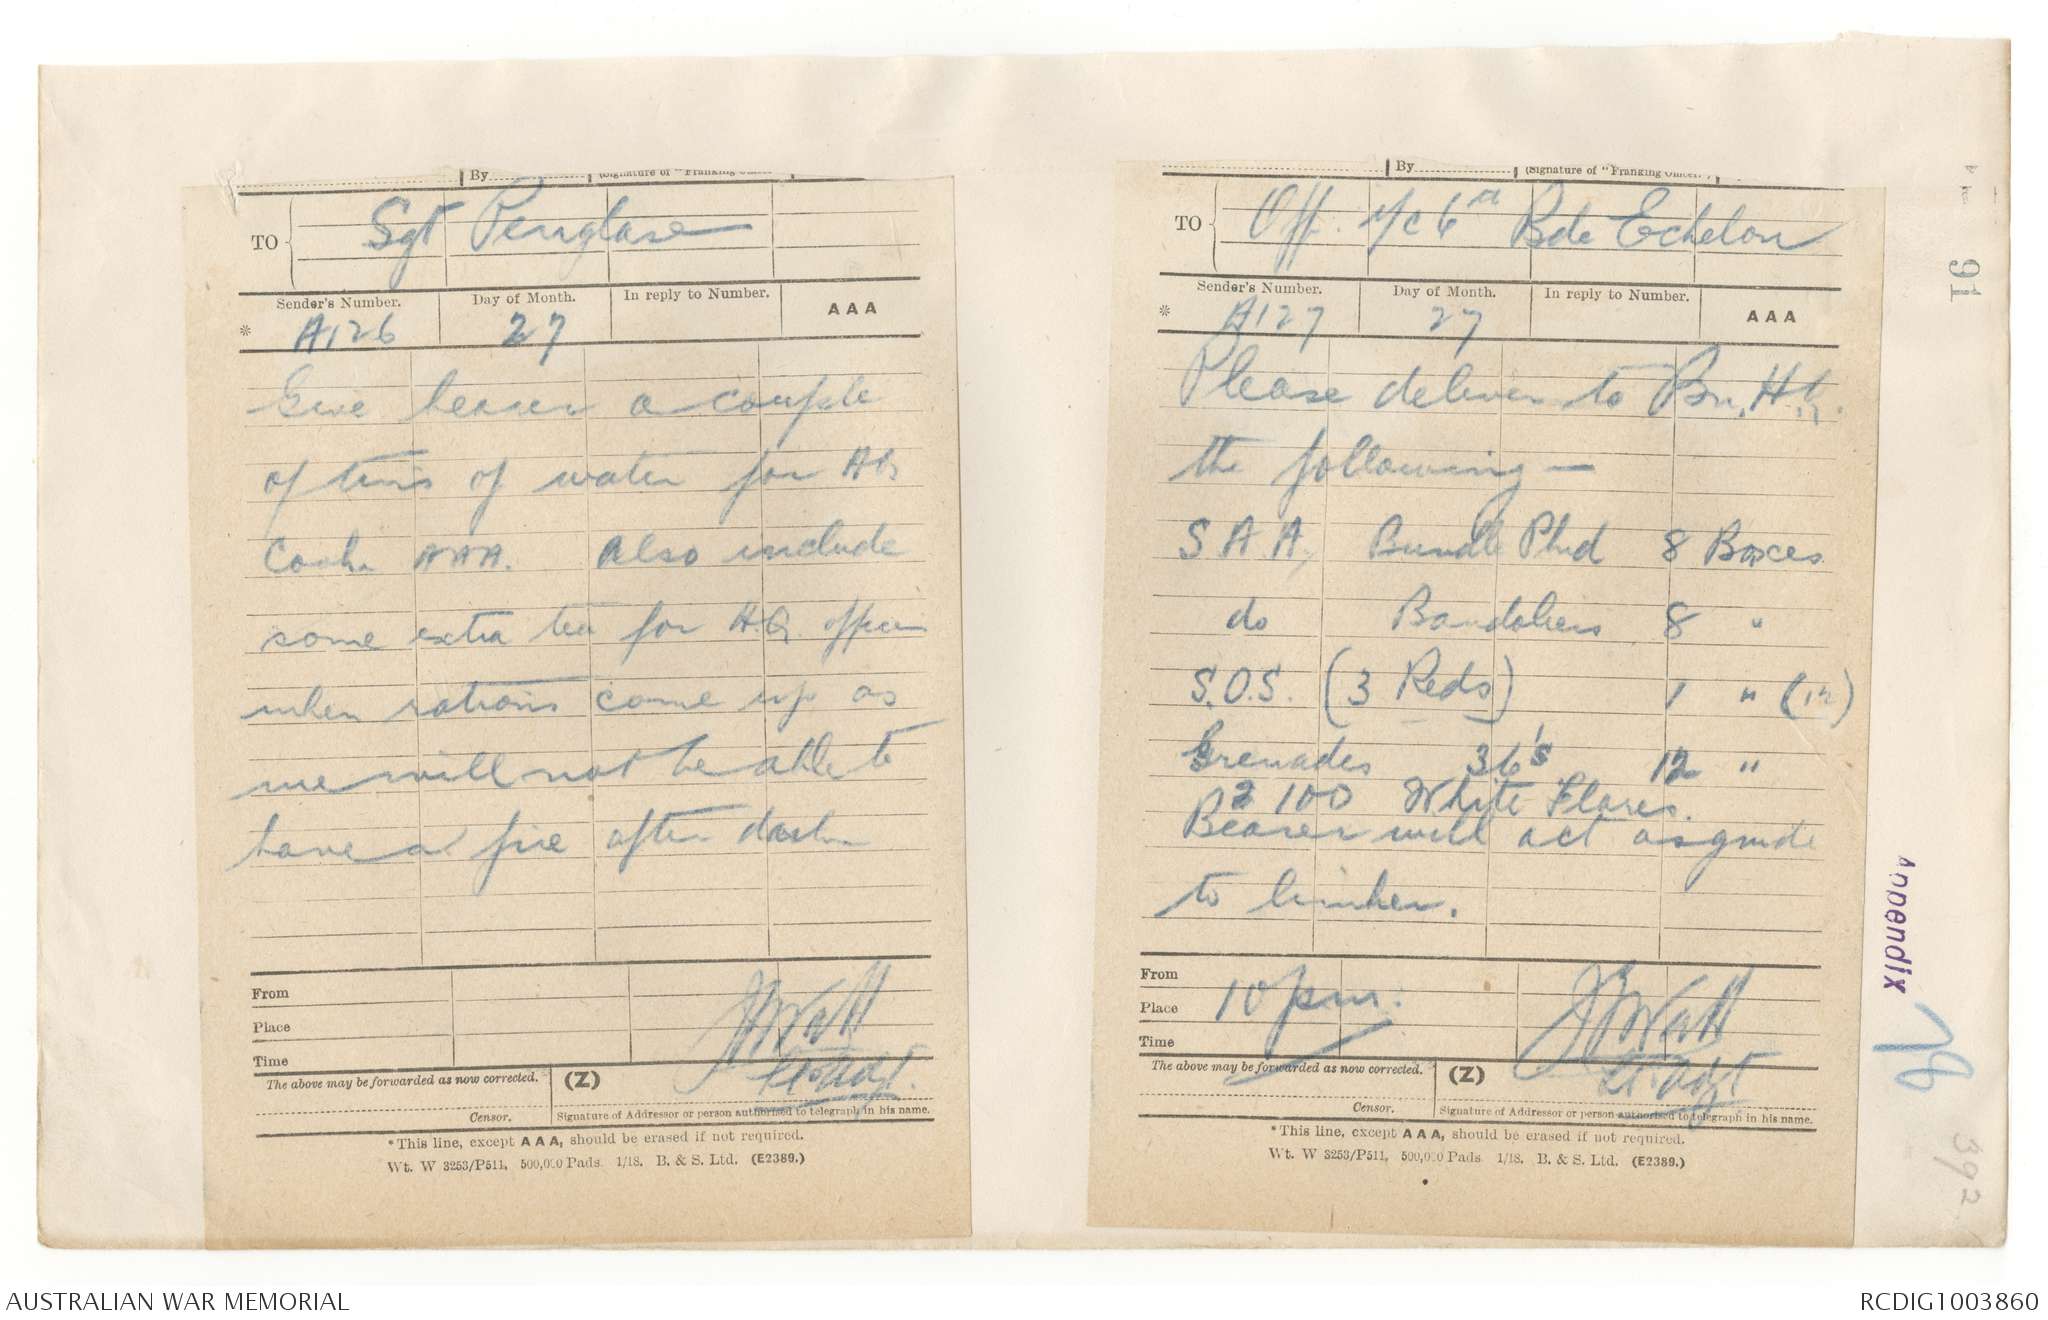 By (Signature of "Franking Officer.")
TO Sgt Penglase
Sender's Number. Day of Month. In reply to Number. AAA
* A126 27
Give bearer a couple
of tins of water for HQ
Cooks AAA. Also include
some extra tea for H.Q. officers
when rations come up as
we will not be able to
have a fire after dark
From
Place
Time
J Watt
Lt Adjt.
The above may be forwarded as now corrected. (Z)
Censor. Signature of Addressor or person authorised to telegraph in his name.
*This line, except AAA, should be erased if not required.
Wt. W 3253/P511. 500,000 Pads. 1/18. B. & S. Ltd. (E2389.)
By (Signature of "Franking Officer.")
TO Off. i/c 6th Bde Echelon
Sender's Number. Day of Month. In reply to Number. AAA
* A127 27
Please deliver to Bn. H.Q.
the following —
S A A, Bundle Pkd 8 Boxes
do Bandoliers 8 "
S.O.S. (3 Reds) 1 " (12)
Grenades 36's 12 "
100 White Flares.
Bearer will act as guide
to limber.
From
Place 10 pm.
Time
J Watt
Lt. Adjt
The above may be forwarded as now corrected. (Z)
Censor. Signature of Addressor or person authorised to telegraph in his name.
*This line, except AAA, should be erased if not required.
Wt. W 3253/P511. 500,000 Pads. 1/18. B. & S. Ltd. (E2389.)
91
Appendix
392
AUSTRALIAN WAR MEMORIAL
RCDIG1003860